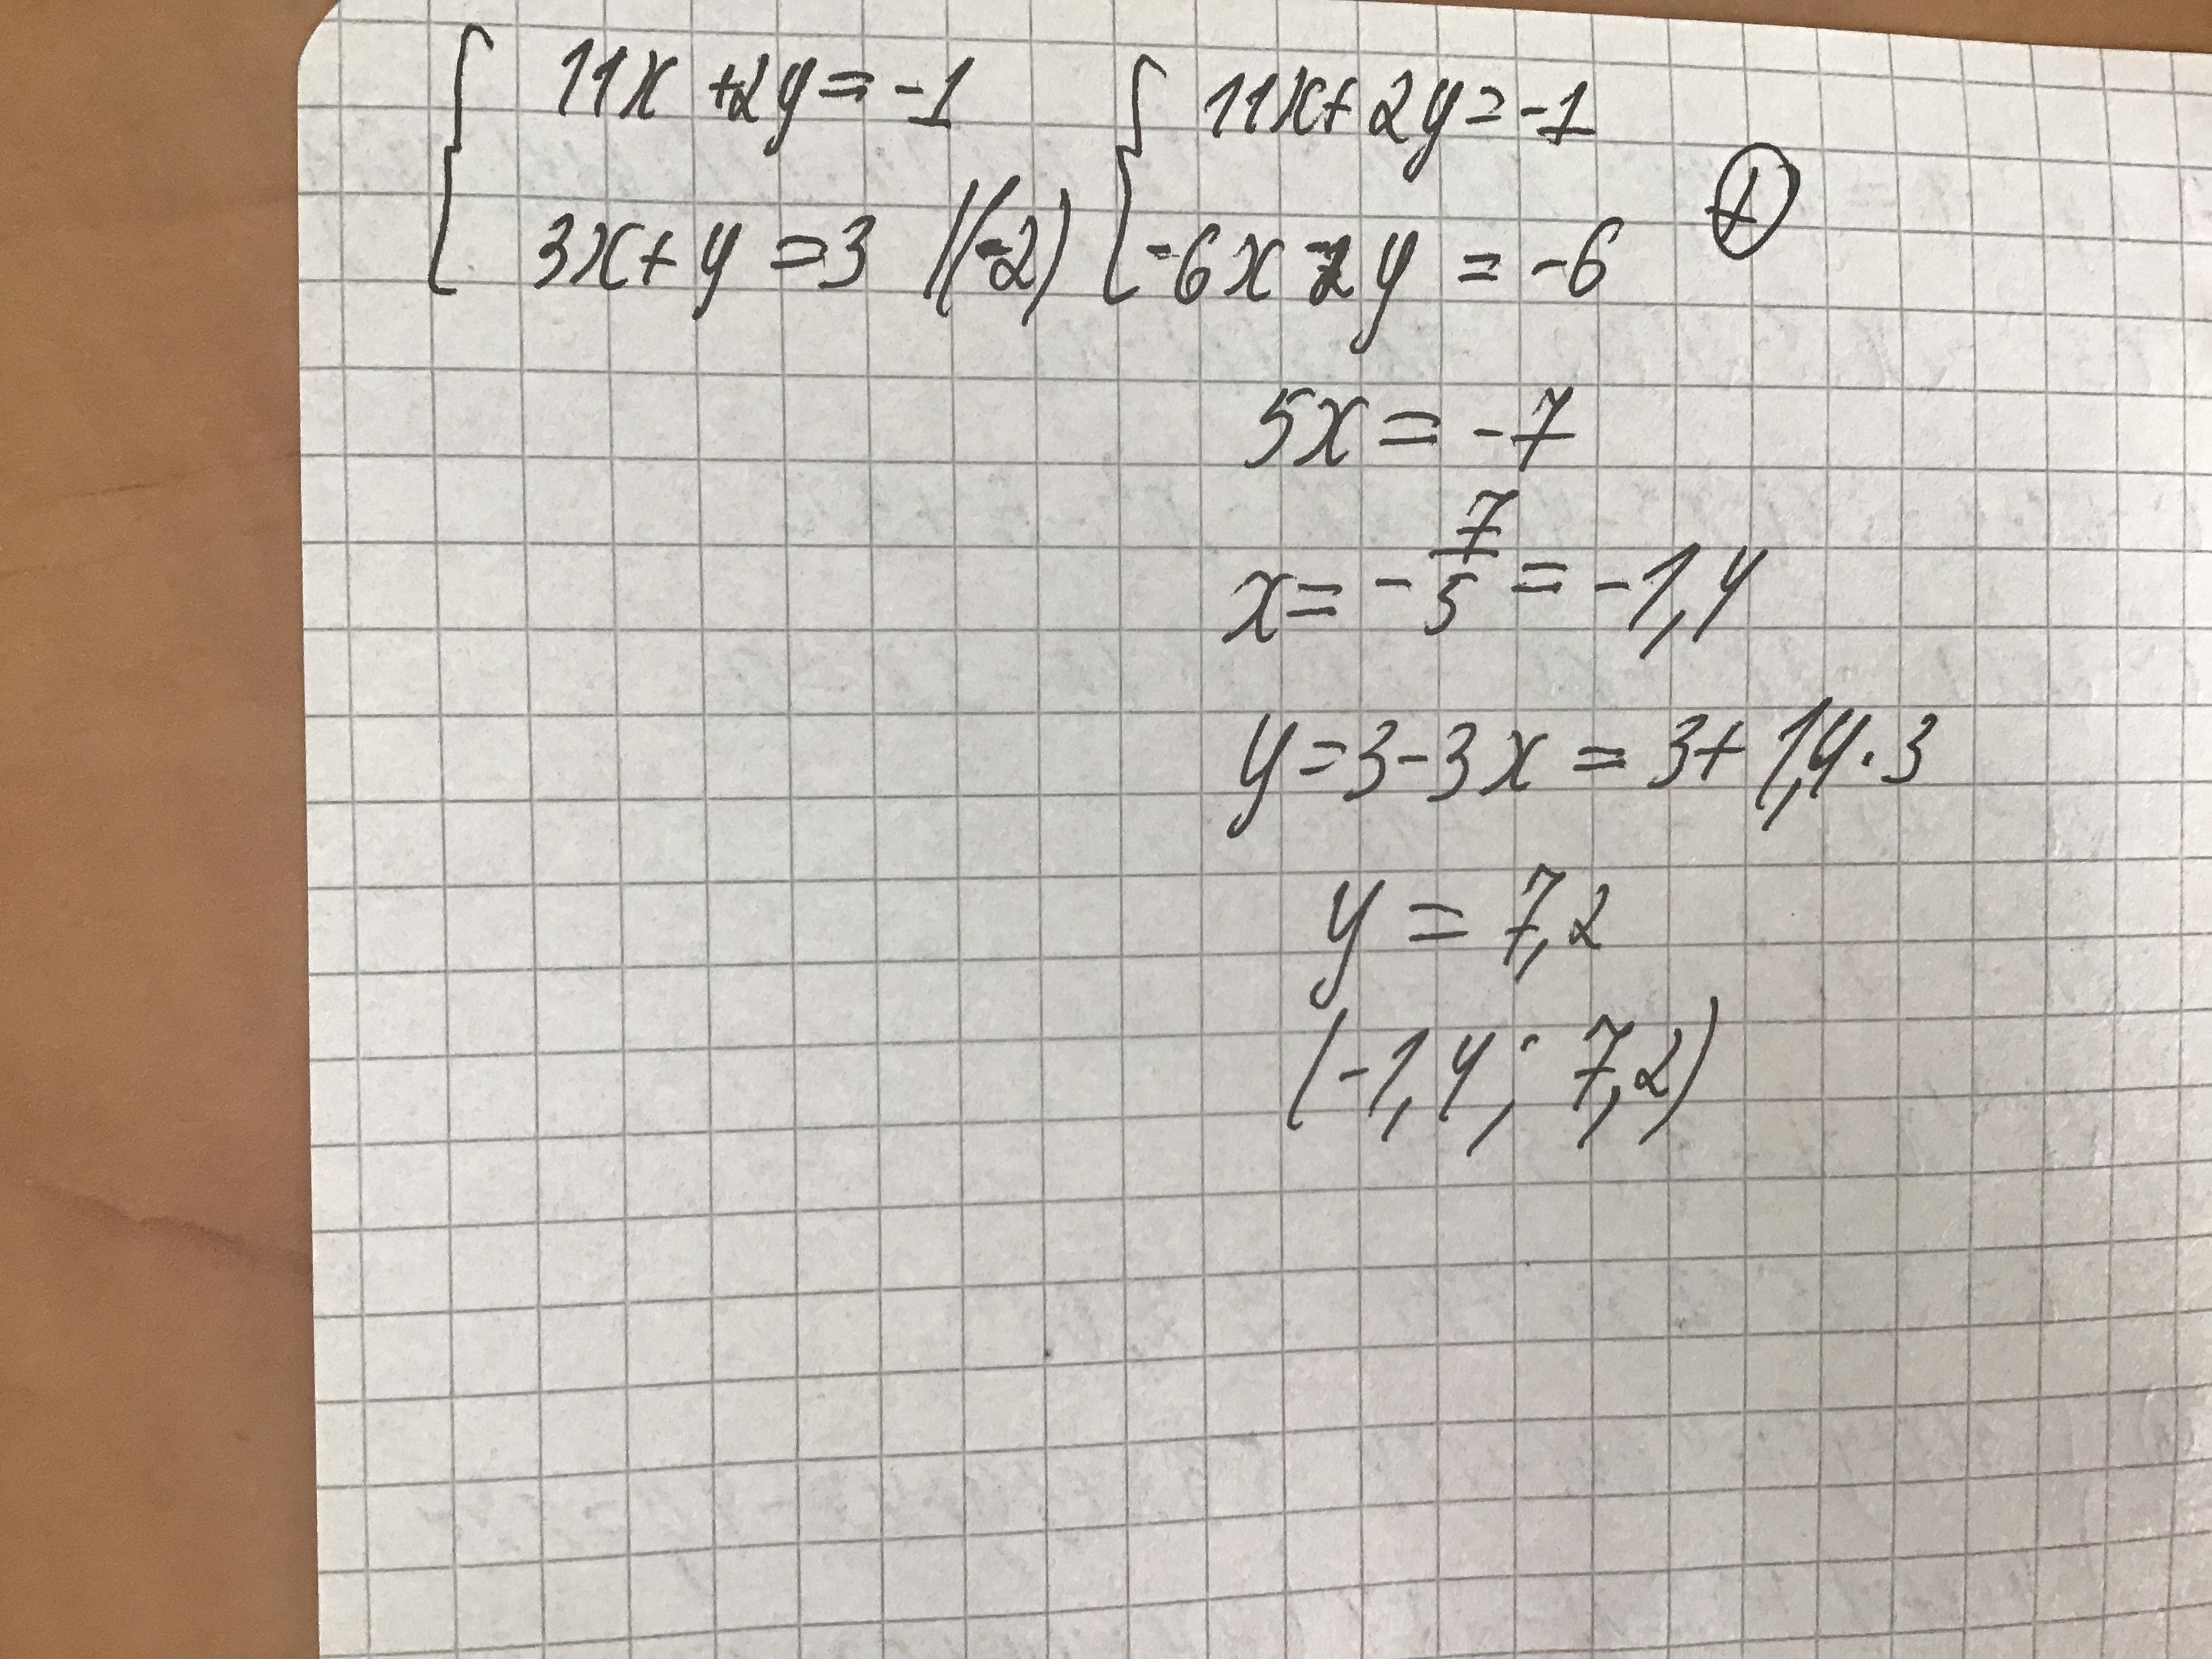 11x + 2y = -1 11x + 2y = -1
3x + y = 3 |(-2) -6x - 2y = -6 +
5x = -7
x = - 7/5 = -1,4
y = 3 - 3x = 3 + 1,4 · 3
y = 7,2
(-1,4; 7,2)